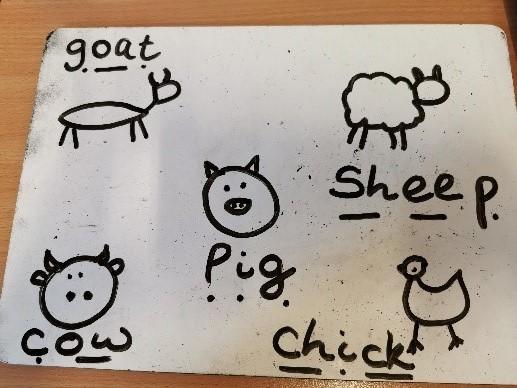 goat
Sheep
Pig
cow
Chick